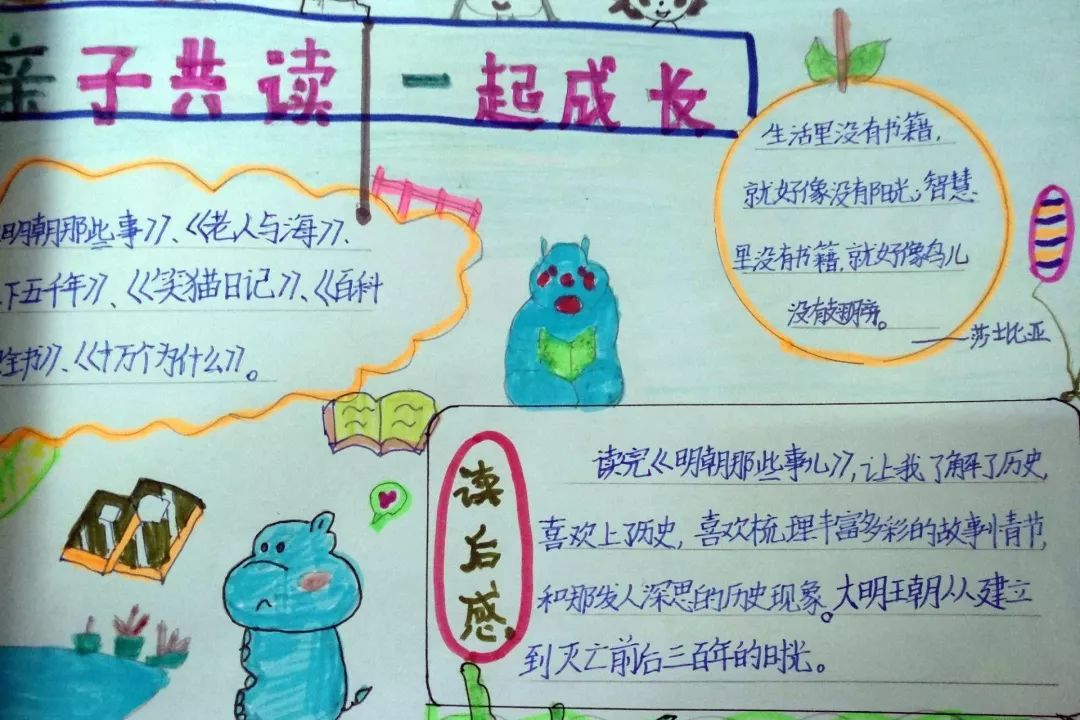 亲子共读 一起成长
生活里没有书籍,
就好像没有阳光;智慧
里没有书籍,就好像鸟儿
没有翅膀。
——莎士比亚
明朝那些事》、《老人与海》、
下五千年》、《笑猫日记》、《百科
全书》、《十万个为什么》。
读后感
读完《明朝那些事儿》,让我了解了历史,
喜欢上了历史,喜欢梳理丰富多彩的故事情节,
和那发人深思的历史现象。大明王朝从建立
到灭亡前后三百年的时光。